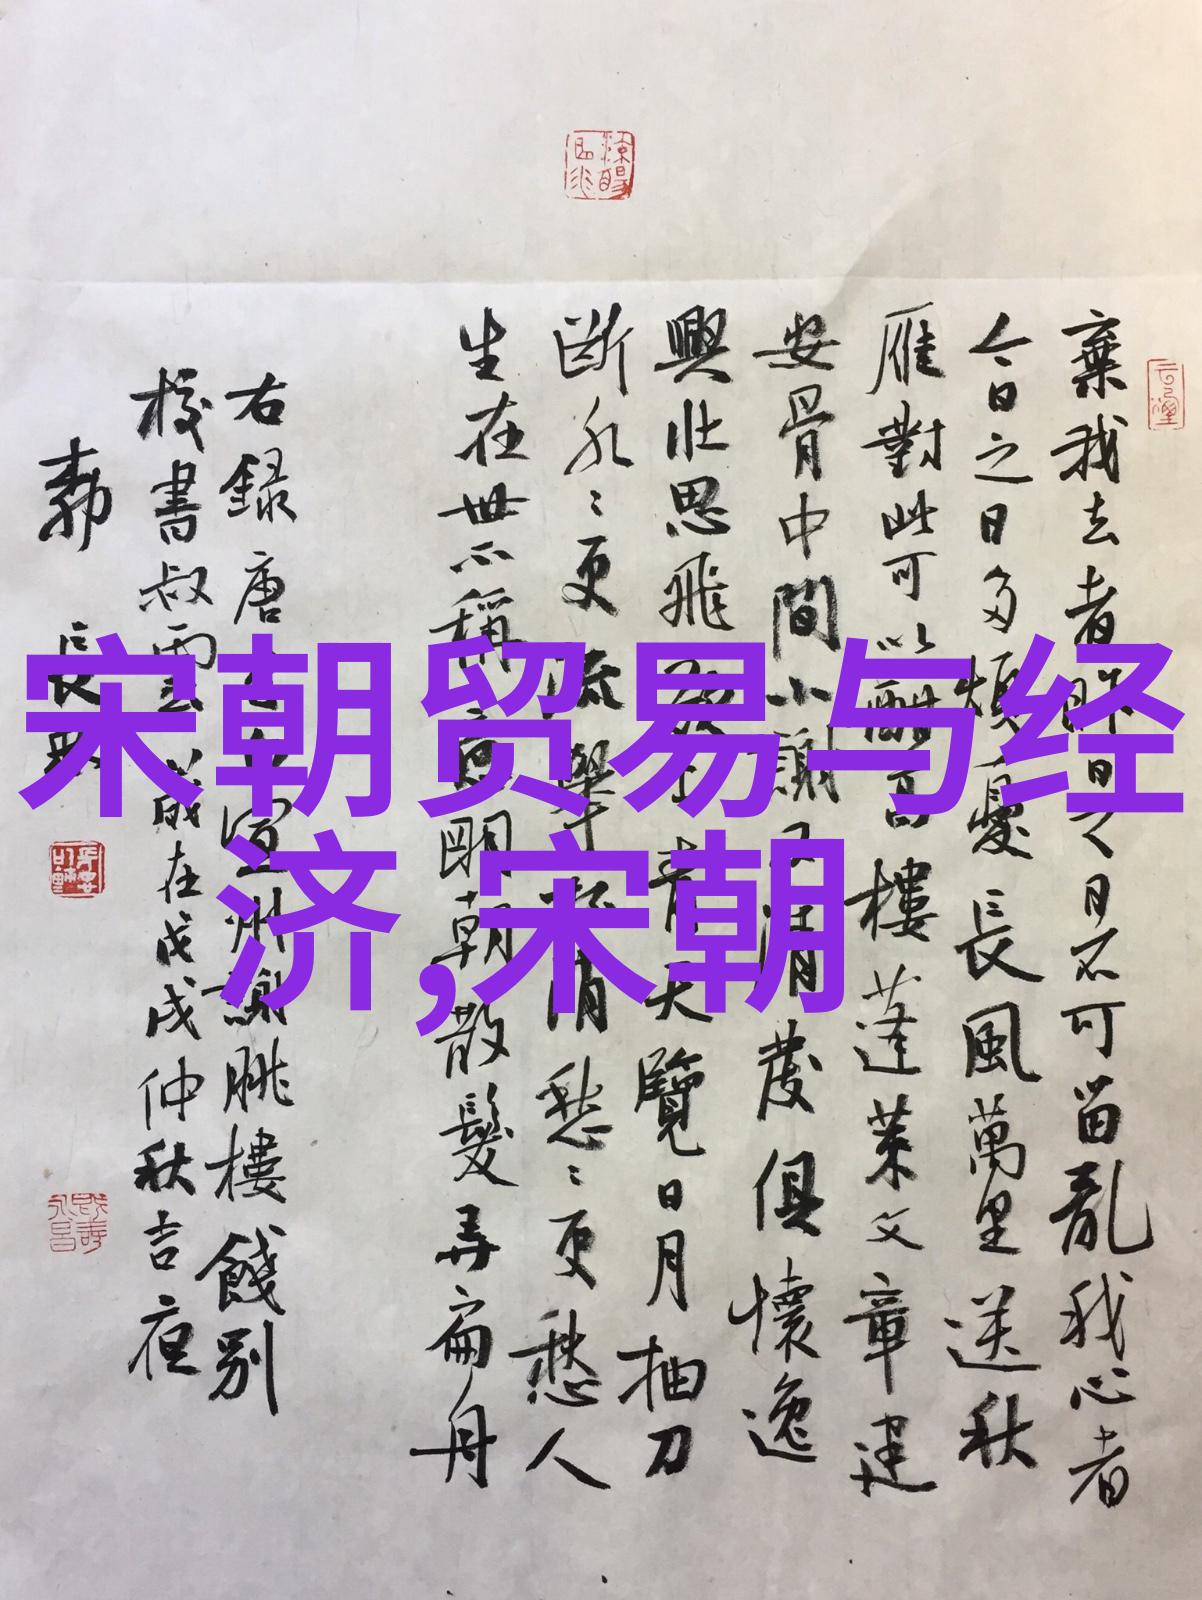 宋朝贸易与经
济,宋朝
棄我去者昨日之日不可留亂我心者
今日之日多煩憂長風萬里送秋
雁對此可以酣高樓蓬萊文章建
安骨中間小謝又清發俱懷逸
興壯思飛欲上青天覽日月抽刀
斷水〻更流舉杯消愁〻更愁人
生在世不稱意明朝散髮弄扁舟
右録唐李白宣州謝朓樓餞別
校書叔雲歲在戊戌仲秋吉夜
長